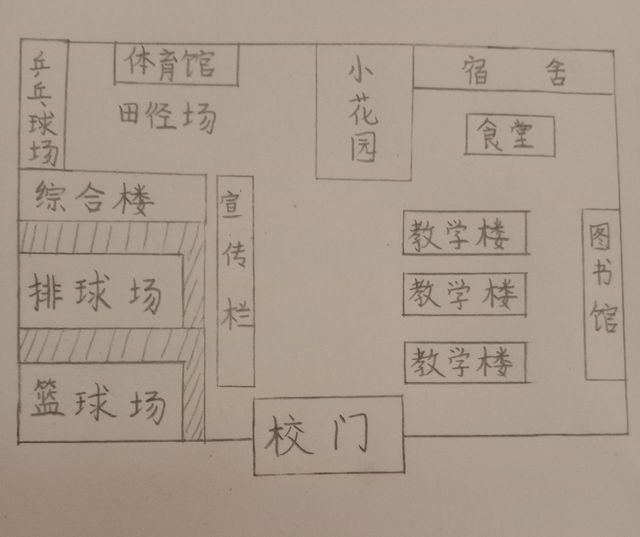 乒乓球场
体育馆
田径场
小花园
宿舍
食堂
综合楼
宣传栏
教学楼
图书馆
排球场
教学楼
教学楼
篮球场
校门